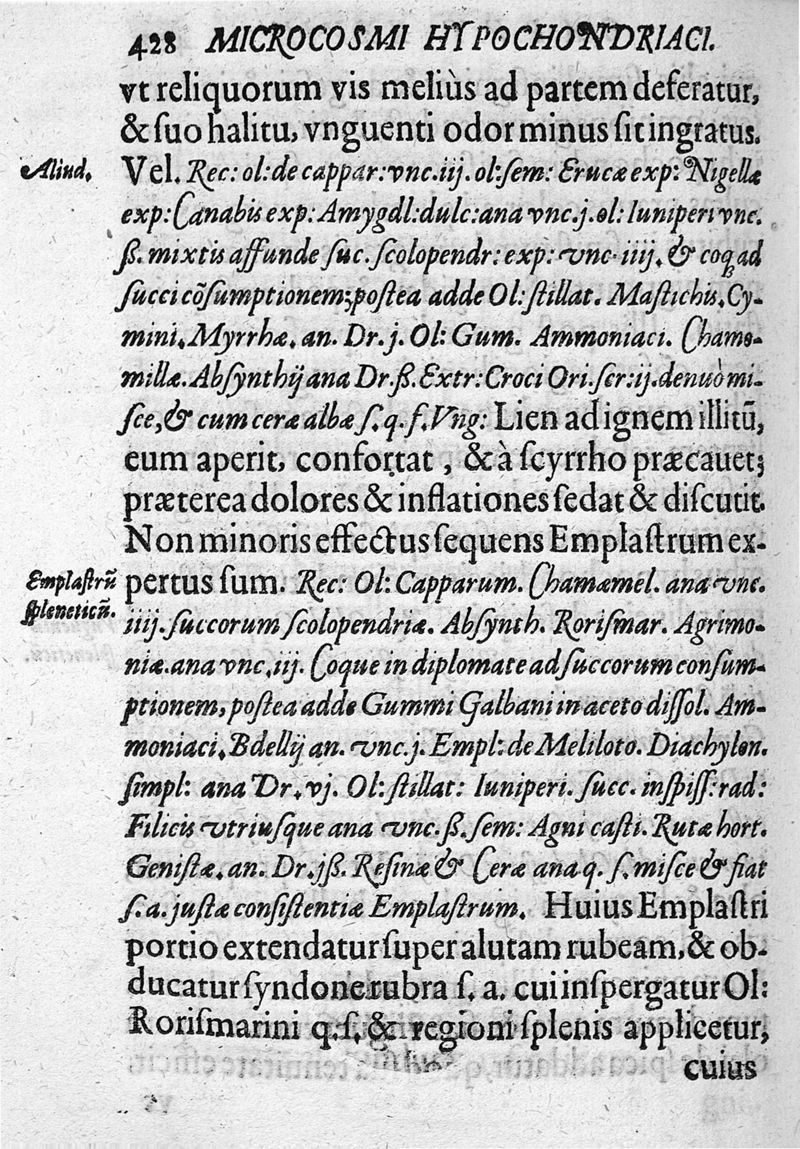 428 MICROCOSMI HYPOCHONDRIACI.
vt reliquorum vis meliùs ad partem deferatur,
& ſuo halitu, vnguenti odor minus ſit ingratus.
Aliud.
Vel. Rec: ol: de cappar: vnc. iij. ol: ſem: Erucæ exp: Nigellæ
exp: Canabis exp: Amygdl: dulc: ana vnc. j. ol: Iuniperi vnc.
ß. mixtis affunde ſuc. ſcolopendr: exp: vnc. iiij. & coq ad
ſucci cõſumptionem; poſtea adde Ol: ſtillat. Maſtichis, Cy-
mini, Myrrhæ, an. Dr. j. Ol: Gum. Ammoniaci. Chamo-
millæ. Abſynthij ana Dr. ß. Extr: Croci Ori. ſcr: ij. denuò mi-
ſce, & cum ceræ albæ ſ. q. f. Vng: Lien ad ignem illitũ,
eum aperit, confortat, & à ſcyrrho præcauet;
præterea dolores & inflationes ſedat & diſcutit.
Non minoris effectus ſequens Emplaſtrum ex-
Emplaſtrũ
ſpleneticũ.
pertus ſum. Rec: Ol: Capparum. Chamæmel. ana vnc.
iiij. ſuccorum ſcolopendriæ. Abſynth. Roriſmar. Agrimo-
niæ. ana vnc. iij. Coque in diplomate ad ſuccorum conſum-
ptionem, poſtea adde Gummi Galbani in aceto diſſol. Am-
moniaci, Bdellij an. vnc. j. Empl: de Meliloto. Diachylon.
ſimpl: ana Dr. vj. Ol: ſtillat: Iuniperi. ſucc. inſpiſſ: rad:
Filicis vtriuſque ana vnc. ß. ſem: Agni caſti. Rutæ hort.
Geniſtæ, an. Dr. jß. Reſinæ & Ceræ ana q. ſ. miſce & fiat
ſ. a. juſtæ conſiſtentiæ Emplaſtrum. Huius Emplaſtri
portio extendatur ſuper alutam rubeam, & ob-
ducatur ſyndone rubra ſ. a. cui inſpergatur Ol:
Roriſmarini q. ſ. & regioni ſplenis applicetur,
cuius